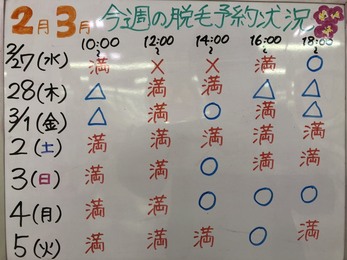 2月3月 今週の脱毛予約状況
10:00 12:00 14:00 16:00 18:00
2/27(水) 満 × × 満 ○
28(木) △ 満 満 △ △
3/1(金) △ 満 ○ 満 △
2(土) 満 満 満 満 満
3(日) 満 満 ○ 満 満
4(月) 満 満 ○ ○ ○
5(火) 満 満 満 ○ 満